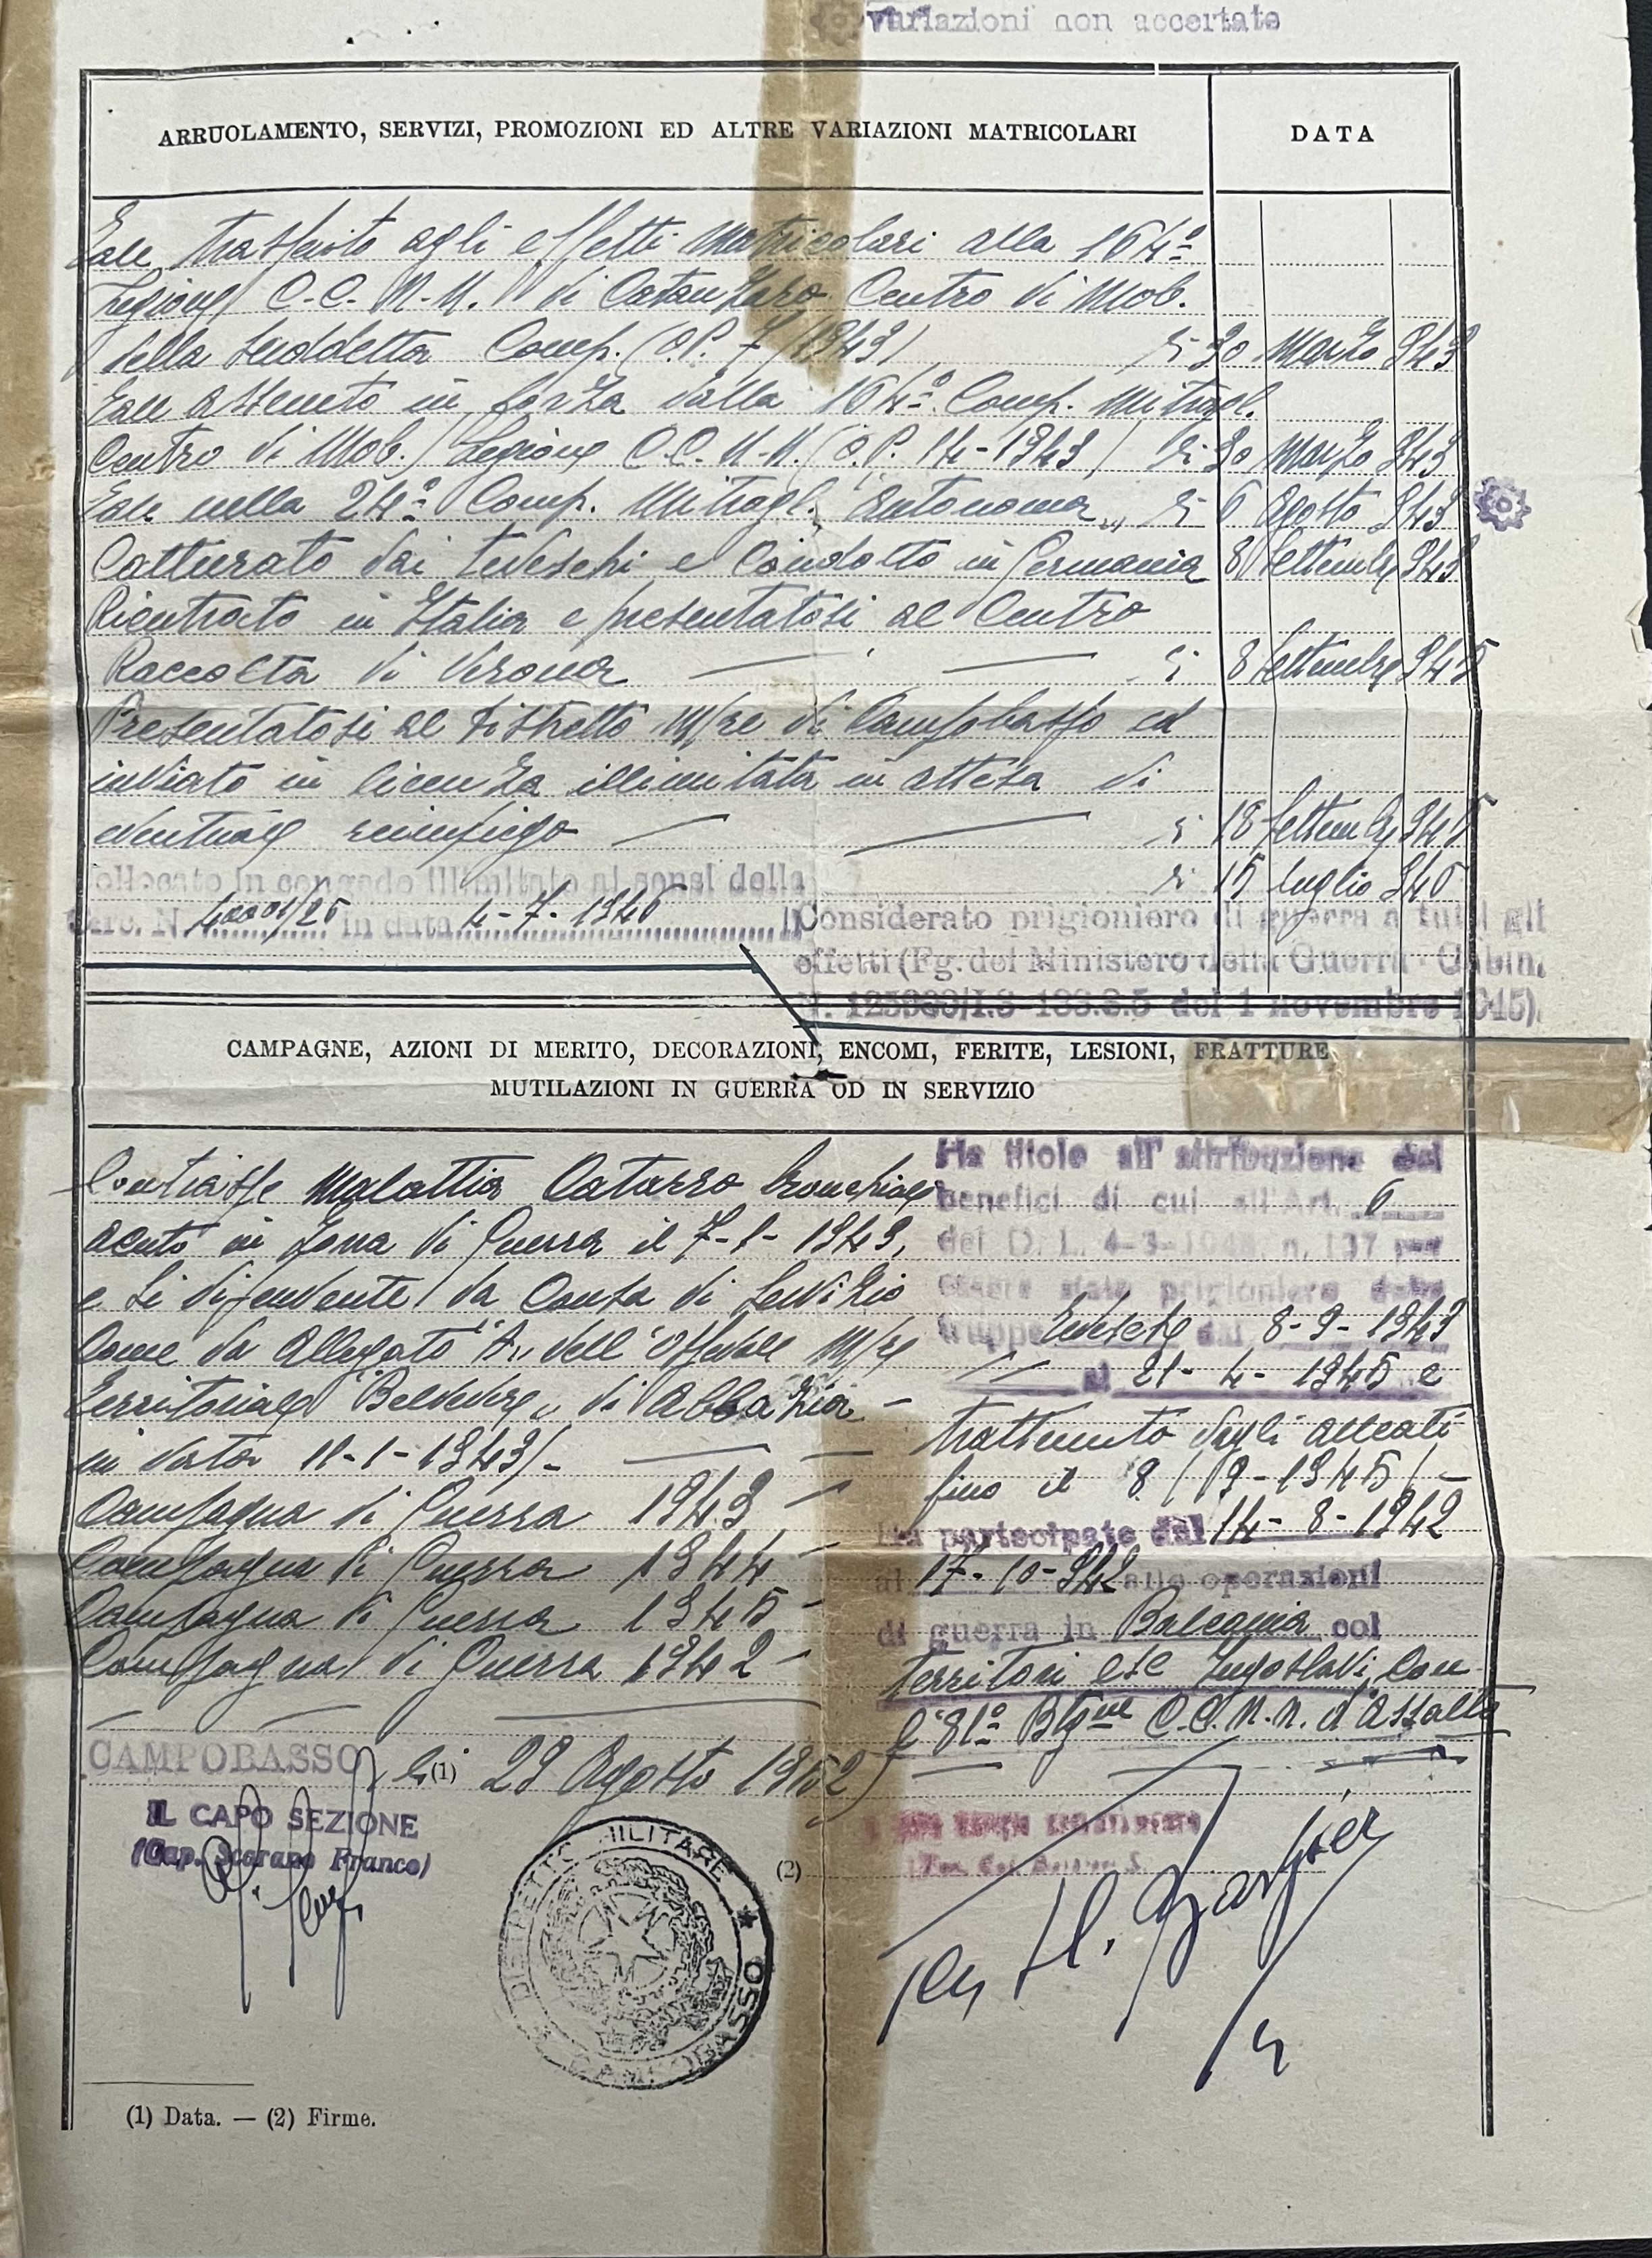 variazioni non accertate
ARRUOLAMENTO, SERVIZI, PROMOZIONI ED ALTRE VARIAZIONI MATRICOLARI
DATA
Tale trasferito agli effetti matricolari alla 164ª
Legione C.C. N.N. di Catanzaro Centro di Mob.
della suddetta Comp. (O.P. 7/1943) li 30 Marzo 943
Tale assunto in forza dalla 164ª Comp. Mitragl.
Centro di Mob. Legione C.C.N.N. (O.P. 14-1943) li 30 Marzo 943
Tale nella 24ª Comp. Mitragl. "Autonoma" li 6 Agosto 943
Catturato dai tedeschi e condotto in Germania 8 Settembre 943
Rientrato in Italia e presentatosi al Centro
Raccolta di Verona li 8 Settembre 945
Presentatosi al Distretto M/re di Campobasso ed
inviato in licenza illimitata in attesa di
eventuale reimpiego li 18 Settembre 945
li 15 luglio 946
Collocato in congedo illimitato ai sensi della
Circ. N. in data 4-7-1946
Considerato prigioniero di guerra a tutti gli
effetti (Fg. del Ministero della Guerra - Gabin.
del 1 novembre 1945).
CAMPAGNE, AZIONI DI MERITO, DECORAZIONI, ENCOMI, FERITE, LESIONI, FRATTURE
MUTILAZIONI IN GUERRA OD IN SERVIZIO
Contrasse Malattia Catarro bronchiale
acuto in Zona di Guerra il 7-1-1943,
e si dipendente da Causa di Servizio
Come da Allegato "A" dell'Ospedale M/re
Territoriale "Belvedere" di Abbazia -
in data 11-1-1943/-
Campagna di Guerra 1943 -
Campagna di Guerra 1944 -
Campagna di Guerra 1945 -
Campagna di Guerra 1942 -
Ha titolo all'attribuzione dei
benefici di cui all'Art. 6
del D. L. 4-3-1948 n. 137 per
essere stato prigioniero delle
truppe tedesche dal 8-9-1943
al 21-4-1945 e
trattenuto dagli alleati
fino il 8/9-1945/-
Ha partecipato dal 14-8-1942
al 17-10-942 alle operazioni
di guerra in Balcania col
territori exe Jugoslavi, con
l'81º Btgne C.C.N.N. d'Assalto
CAMPOBASSO, li (1) 29 Agosto 1952
IL CAPO SEZIONE
(Cap. Scarano Franco)
DISTRETTO MILITARE
CAMPOBASSO
(2)
(1) Data. — (2) Firme.